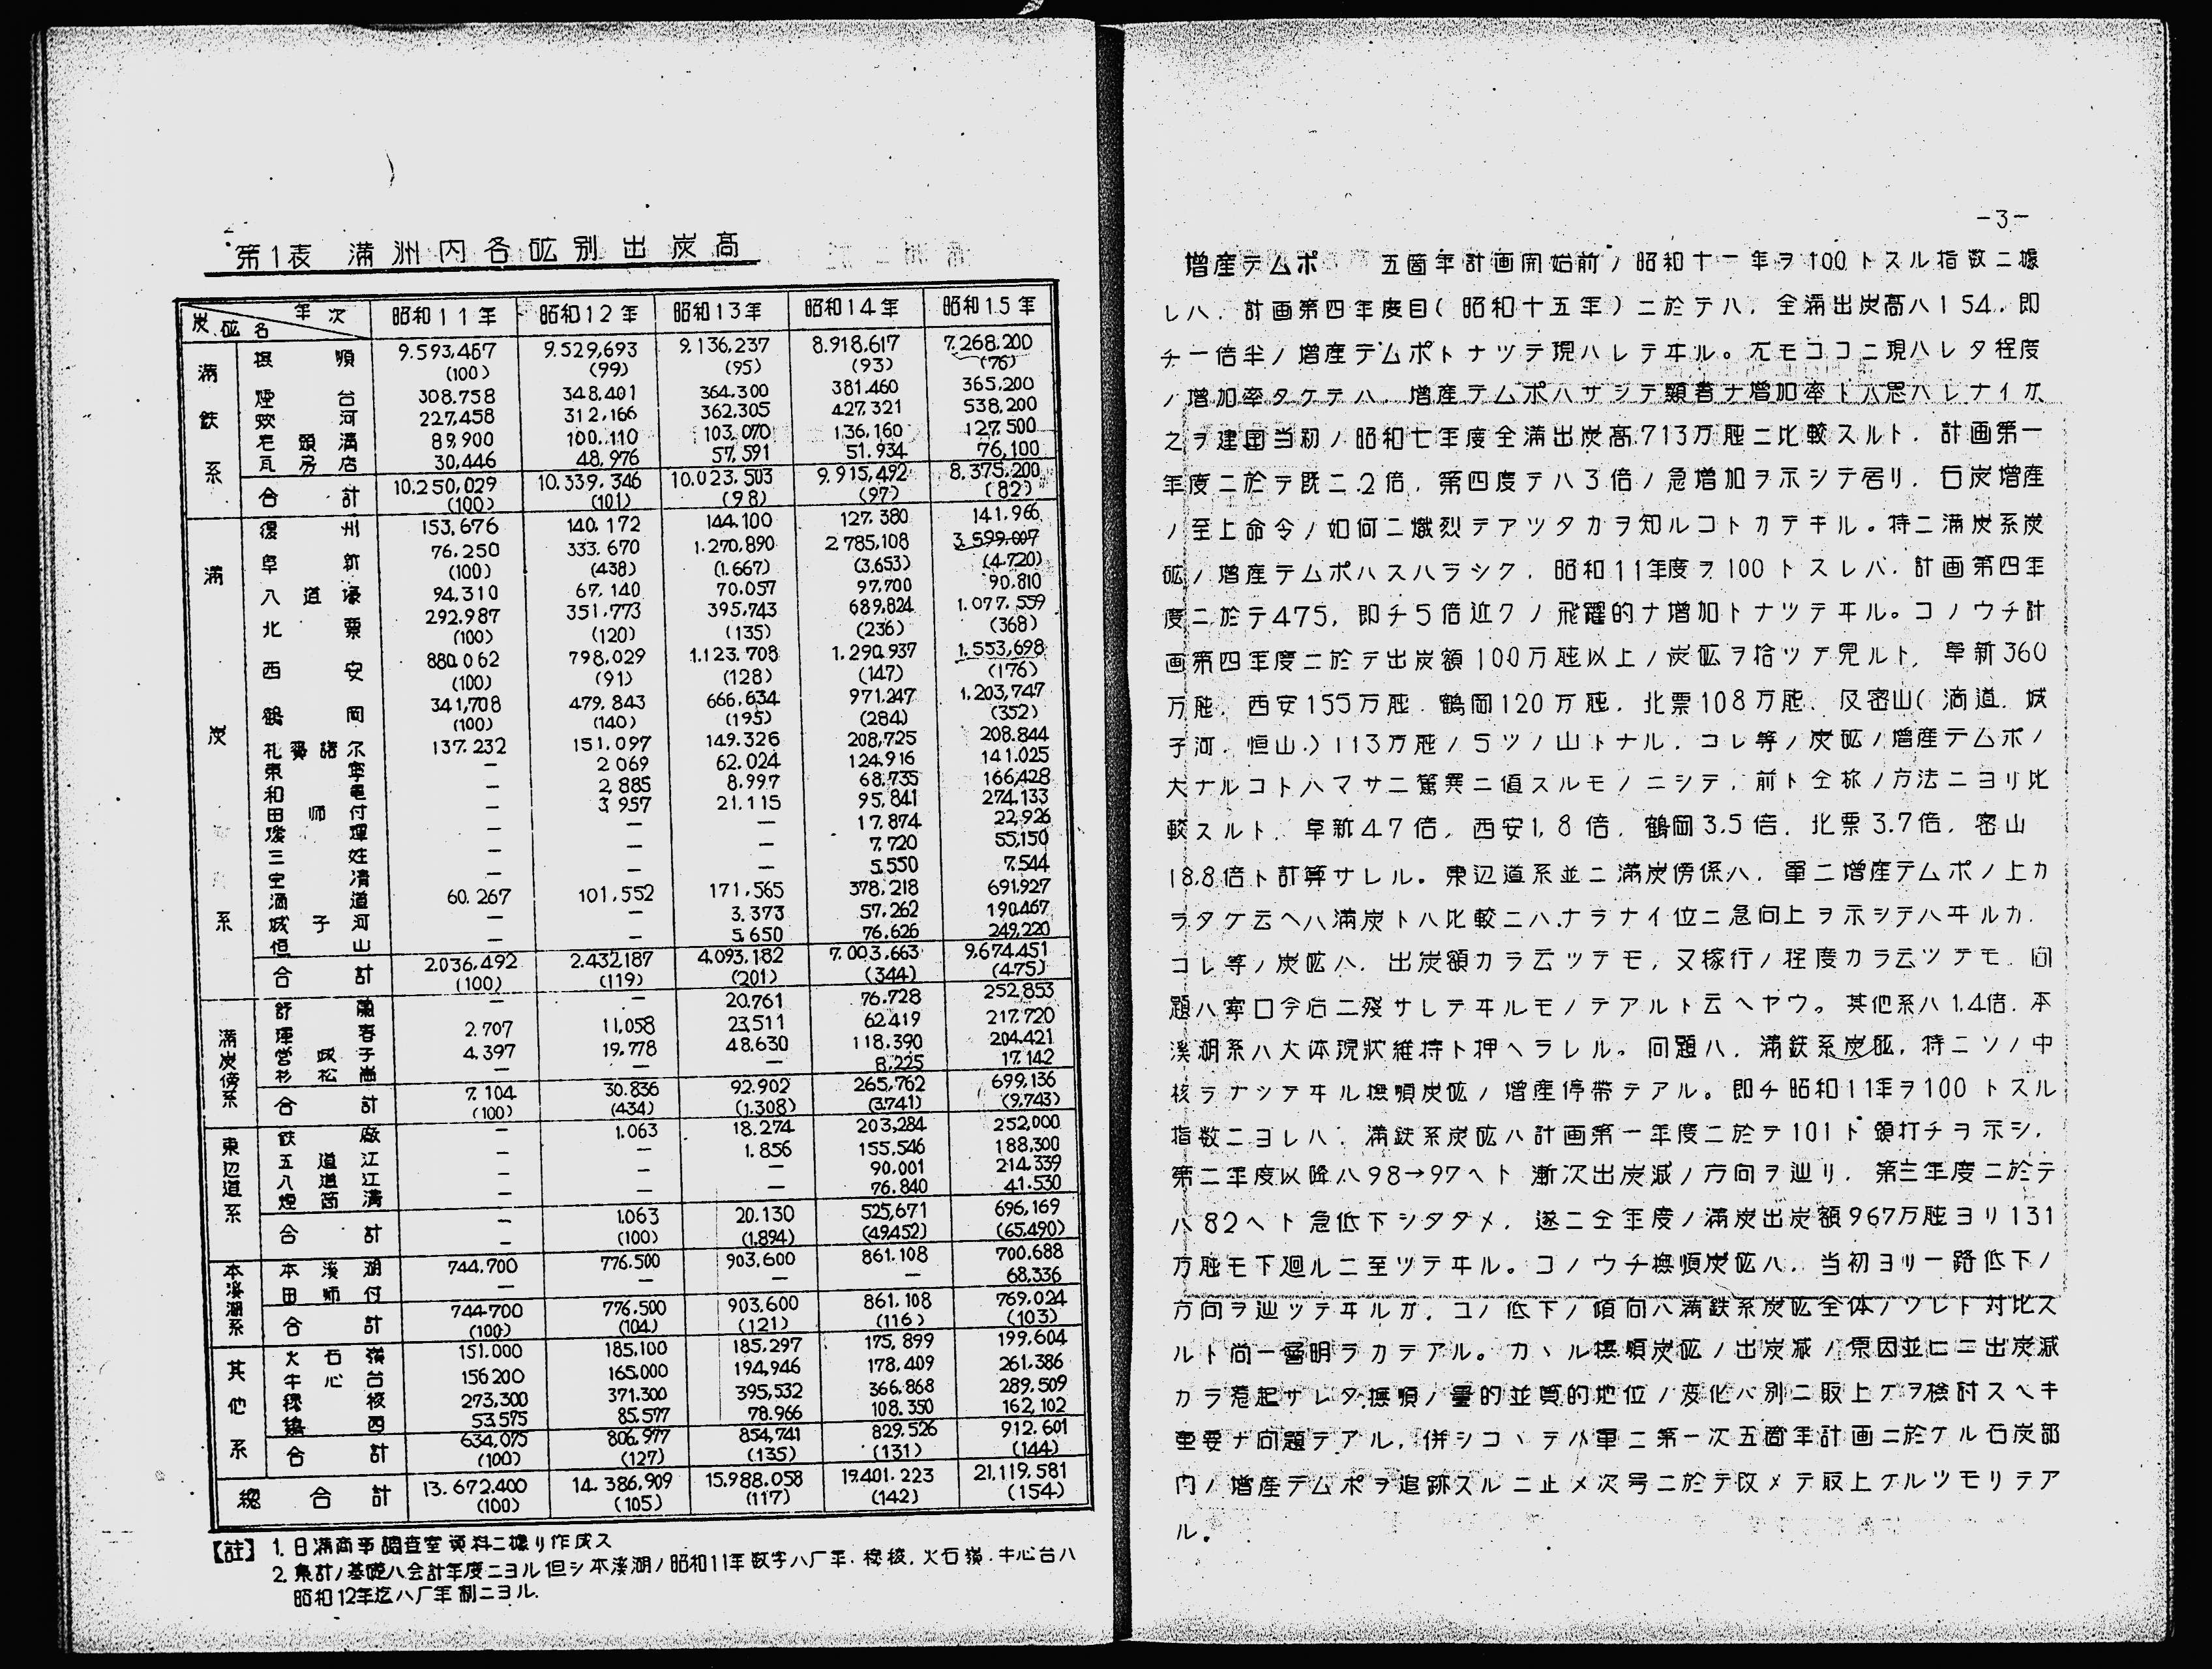 第1表 満洲内各砿別出炭高
年次 炭砿名 昭和11年 昭和12年 昭和13年 昭和14年 昭和15年
満鉄系
撫順 9.593,467 9.529,693 9.136,237 8.918,617 7.268,200
(100) (99) (95) (93) (76)
煙台 308.758 348.401 364.300 381.460 365,200
蛟河 227,458 312,166 362,305 427,321 538,200
老頭溝 89,900 100.110 103,070 136,160 127,500
瓦房店 30,446 48,976 57,591 51.934 76,100
合計 10.250,029 10.339,346 10.023,503 9,915,492 8,375,200
(100) (101) (98) (97) (82)
満炭系
復州 153,676 140,172 144.100 127,380 141,966
阜新 76.250 333.670 1.270,890 2,785,108 3,599,007
(100) (438) (1.667) (3.653) (4.720)
八道壕 94,310 67,140 70.057 97,700 90,810
北票 292,987 351,773 395,743 689,824 1.077,559
(100) (120) (135) (236) (368)
西安 880.062 798,029 1.123.708 1.290,937 1,553,698
(100) (91) (128) (147) (176)
鶴岡 341,708 479,843 666,634 971,247 1,203,747
(100) (140) (195) (284) (352)
札賚諾尔 137.232 151.097 149.326 208,725 208.844
東寧 — 2.069 62.024 124.916 141.025
和竜 — 2,885 8,997 68,735 166,428
田師付 — 3,957 21.115 95,841 274,133
琿 — — — 17.874 22,926
三姓 — — — 7,720 55,150
宝清 — — — 5,550 7,544
滴道 60.267 101,552 171,565 378,218 691,927
城子河 — — 3.373 57,262 190,467
恒山 — — 5,650 76.626 249,220
合計 2.036,492 2.432,187 4.093,182 7.003,663 9,674,451
(100) (119) (201) (344) (475)
満炭傍系
舒蘭 — — 20.761 76.728 252,853
琿春 2.707 11,058 23,511 62.419 217,720
営城子 4.397 19.778 48.630 118.390 204,421
杉松崗 — — — 8.225 17,142
合計 7.104 30.836 92.902 265,762 699,136
(100) (434) (1.308) (3.741) (9,743)
東辺道系
鉄廠 — 1.063 18.274 203,284 252,000
五道江 — — 1.856 155,546 188,300
八道江 — — — 90.001 214,339
煙筒溝 — — — 76.840 41.530
合計 — 1.063 20.130 525,671 696,169
— (100) (1.894) (49.452) (65.490)
本渓湖系
本渓湖 744.700 776.500 903.600 861.108 700.688
田師付 — — — — 68,336
合計 744.700 776.500 903.600 861.108 769.024
(100) (104) (121) (116) (103)
其他系
火石嶺 151.000 185.100 185.297 175,899 199.604
牛心台 156.200 165.000 194,946 178,409 261.386
穆稜 273,300 371.300 395,532 366.868 289.509
西 53,575 85.577 78.966 108.350 162,102
合計 634.075 806,977 854,741 829,526 912.601
(100) (127) (135) (131) (144)
総合計 13.672,400 14.386,909 15.988.058 19.401.223 21,119,581
(100) (105) (117) (142) (154)
【註】 1. 日満商事調査室資料ニ據リ作成ス
2. 集計ノ基礎ハ会計年度ニヨル但シ本渓湖ノ昭和11年数字ハ厂年.穆稜.火石嶺.牛心台ハ
昭和12年迄ハ厂年制ニヨル.
-3-
増産テムポ 五箇年計画開始前ノ昭和十一年ヲ100トスル指数ニ據
レハ、計画第四年度目(昭和十五年)ニ於テハ、全満出炭高ハ154、即
チ一倍半ノ増産テムポトナツテ現ハレテヰル。尤モココニ現ハレタ程度
ノ増加率タケテハ、増産テムポハサシテ顕著ナ増加率トハ思ハレナイカ
之ヲ建国当初ノ昭和七年度全満出炭高713万瓲ニ比較スルト、計画第一
年度ニ於テ既ニ2倍、第四度テハ3倍ノ急増加ヲ示シテ居リ、石炭増産
ノ至上命令ノ如何ニ熾烈テアツタカヲ知ルコトカテキル。特ニ満炭系炭
砿ノ増産テムポハスハラシク、昭和11年度ヲ100トスレバ、計画第四年
度ニ於テ475、即チ5倍近クノ飛躍的ナ増加トナツテヰル。コノウチ計
画第四年度ニ於テ出炭額100万瓲以上ノ炭砿ヲ拾ツテ見ルト、阜新360
万瓲、西安155万瓲、鶴岡120万瓲、北票108万瓲、及密山(滴道、城
子河、恒山)113万瓲ノ5ツノ山トナル、コレ等ノ炭砿ノ増産テムポノ
大ナルコトハマサニ驚異ニ値スルモノニシテ、前ト仝様ノ方法ニヨリ比
較スルト、阜新47倍、西安1,8倍、鶴岡3.5倍、北票3.7倍、密山
18.8倍ト計算サレル。東辺道系並ニ満炭傍係ハ、単ニ増産テムポノ上カ
ラタケ云ヘハ満炭トハ比較ニハナラナイ位ニ急向上ヲ示シテハヰルカ、
コレ等ノ炭砿ハ、出炭額カラ云ツテモ、又稼行ノ程度カラ云ツテモ、問
題ハ寧ロ今后ニ残サレテヰルモノテアルト云ヘヤウ。其他系ハ1.4倍、本
渓湖系ハ大体現状維持ト押ヘラレル。問題ハ、満鉄系炭砿、特ニソノ中
核ヲナツテヰル撫順炭砿ノ増産停滞テアル。即チ昭和11年ヲ100トスル
指数ニヨレハ、満鉄系炭砿ハ計画第一年度ニ於テ101ト頭打チヲ示シ、
第二年度以降ハ98→97ヘト漸次出炭減ノ方向ヲ辿リ、第三年度ニ於テ
ハ82ヘト急低下シタタメ、遂ニ仝年度ノ満炭出炭額967万瓲ヨリ131
万瓲モ下廻ルニ至ツテヰル。コノウチ撫順炭砿ハ、当初ヨリ一路低下ノ
方向ヲ辿ツテヰルガ、コノ低下ノ傾向ハ満鉄系炭砿全体ノソレト対比ス
ルト尚一層明ラカテアル。カヽル撫順炭砿ノ出炭減ノ原因並ヒニ出炭減
カラ惹起サレタ撫順ノ量的並質的地位ノ変化ハ別ニ取上ケヲ検討スヘキ
重要ナ問題テアル、併シコヽテハ単ニ第一次五箇年計画ニ於ケル石炭部
門ノ増産テムポヲ追跡スルニ止メ次号ニ於テ改メテ取上ケルツモリテア
ル。